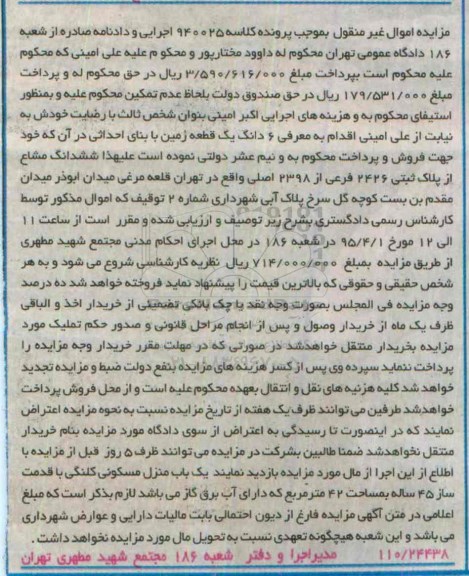 مزایده اموال غیر منقول بموجب پرونده کلاسه ۹۴۰۰۲۵ اجرایی و دادنامه صادره از شعبه
۱۸۶ دادگاه عمومی تهران محکوم له داوود مختارپور و محکوم علیه علی امینی که محکوم
علیه محکوم است بپرداخت مبلغ ۳/۵۹۰/۶۱۶/۰۰۰ ریال در حق محکوم له و پرداخت
مبلغ ۱۷۹/۵۳۱/۰۰۰ ریال در حق صندوق دولت بلحاظ عدم تمکین محکوم علیه و بمنظور
استیفای محکوم به و هزینه های اجرایی اکبر امینی بنوان شخص ثالث با رضایت خودش به
نیابت از علی امینی اقدام به معرفی ۶ دانگ یک قطعه زمین با بنای احداثی در آن که خود
جهت فروش و پرداخت محکوم به و نیم عشر دولتی نموده است علیهذا ششدانگ مشاع
از پلاک ثبتی ۲۴۲۶ فرعی از ۲۳۹۸ اصلی واقع در تهران قلعه مرغی میدان ابوذر میدان
مقدم بن بست کوچه گل سرخ پلاک آبی شهرداری شماره ۲ توقیف که اموال مذکور توسط
کارشناس رسمی دادگستری بشرح زیر توصیف و ارزیابی شده و مقرر است از ساعت ۱۱
الی ۱۲ مورخ ۹۵/۴/۱ در شعبه ۱۸۶ در محل اجرای احکام مدنی مجتمع شهید مطهری
از طریق مزایده بمبلغ ۷۱۴/۰۰۰/۰۰۰ ریال نظریه کارشناسی شروع می شود و به هر
شخص حقیقی و حقوقی که بالاترین قیمت را پیشنهاد نماید فروخته خواهد شد ده درصد
وجه مزایده فی المجلس بصورت وجه نقد یا چک بانکی تضمینی از خریدار اخذ و الباقی
ظرف یک ماه از خریدار وصول و پس از انجام مراحل قانونی و صدور حکم تملیک مورد
مزایده بخریدار منتقل خواهدشد در صورتی که در مهلت مقرر خریدار وجه مزایده را
پرداخت ننماید سپرده وی پس از کسر هزینه های مزایده بنفع دولت ضبط و مزایده تجدید
خواهد شد کلیه هزنیه های نقل و انتقال بعهده محکوم علیه است و از محل فروش پرداخت
خواهدشد طرفین می توانند ظرف یک هفته از تاریخ مزایده نسبت به نحوه مزایده اعتراض
نمایند که در اینصورت تا رسیدگی به اعتراض از سوی دادگاه مورد مزایده بنام خریدار
منتقل نخواهدشد ضمنا طالبین بشرکت در مزایده می توانند ظرف ۵ روز قبل از مزایده با
اطلاع از این اجرا از مال مورد مزایده بازدید نمایند یک باب منزل مسکونی کلنگی با قدمت
ساز ۴۵ ساله بمساحت ۴۲ مترمربع که دارای آب برق گاز می باشد لازم بذکر است که مبلغ
اعلامی در متن آگهی مزایده فارغ از دیون احتمالی بابت مالیات دارایی و عوارض شهرداری
می باشد و این شعبه هیچگونه تعهدی نسبت به تحویل مال مورد مزایده نخواهد داشت .
۱۱۰/۲۴۴۳۸ مدیراجرا و دفتر شعبه ۱۸۶ مجتمع شهید مطهری تهران